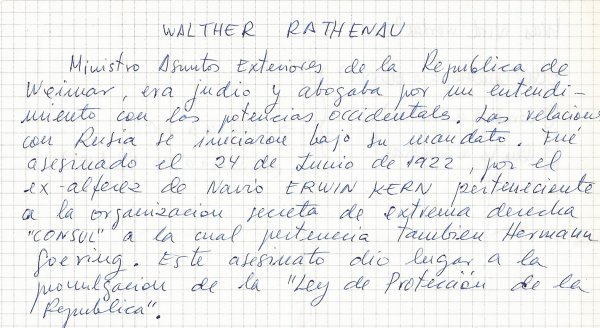 WALTHER RATHENAU
Ministro Asuntos Exteriores de la Republica de
Weimar, era judio y abogaba por un entendi-
miento con las potencias occidentales. Las relacion
con Rusia se iniciaron bajo su mandato. Fué
asesinado el 24 de Junio de 1922, por el
ex-alferez de Navio ERWIN KERN perteneciente
a la organizacion secreta de extrema derecha
"CONSUL" a la cual pertenecia tambien Hermann
Goering. Este asesinato dio lugar a la
promulgacion de la "Ley de Protección de la
Republica".